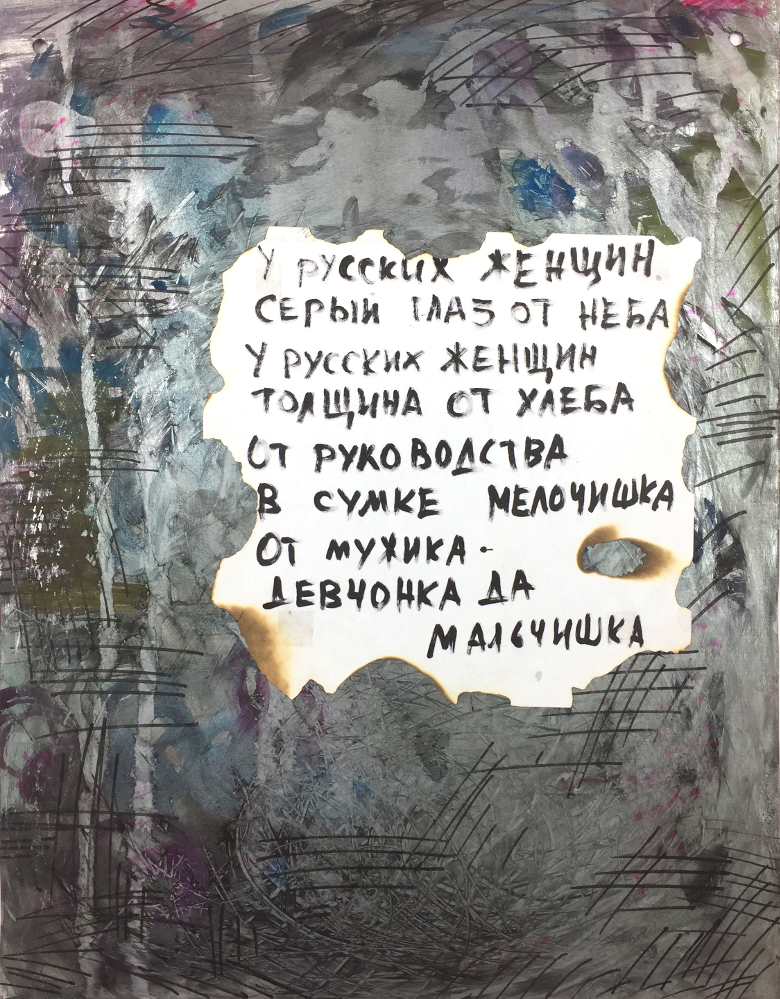 У РУССКИХ ЖЕНЩИН.
СЕРЫЙ ГЛАЗ ОТ НЕБА
У РУССКИХ ЖЕНЩИН
ТОЛЩИНА ОТ ХЛЕБА
ОТ РУКОВОДСТВА
В СУМКЕ МЕЛОЧИШКА
ОТ МУЖИКА -
ДЕВЧОНКА ДА
МАЛЬЧИШКА